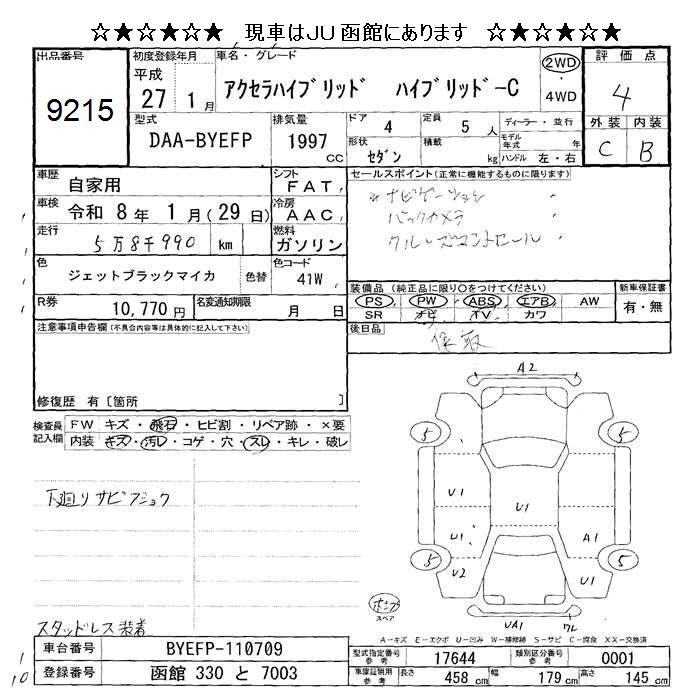 ☆★☆★☆★ 現車はJU函館にあります ☆★☆★☆★
出品番号
9215
初度登録年月
平成
27 1月
車名・グレード
アクセラハイブリッド ハイブリッド-C
2WD
・
4WD
評価点
4
外装 内装
C B
型式
DAA-BYEFP
排気量
1997
CC
ドア 4
定員 5人
形状 セダン
積載 kg
ディーラー・並行
モデル年式 年
ハンドル 左・右
車歴 自家用
シフト FAT
車検 令和 8年 1月(29日)
冷房 AAC
走行 5万8千990 km
燃料 ガソリン
色 ジェットブラックマイカ 色替
色コード 41W
R券 10,770円
名変通知期限 月 日
セールスポイント(正常に機能するものに限ります)
ナビゲーション
バックカメラ
クルーズコントロール
装備品(純正品に限り○をつけてください)
PS PW ABS エアB AW
SR ナビ TV カワ
新車保証書
有・無
後日品
保取
注意事項申告欄(不具合内容等は具体的に記入して下さい)
修復歴 有〔箇所 〕
検査員記入欄
FW キズ・飛石・ヒビ割・リペア跡・×要
内装 キズ・汚レ・コゲ・穴・スレ・キレ・破レ
下廻りサビフショク
スタッドレス装着
A2
5
5
U1
U1
U1
A1
5
U2
U1
5
ポンプ
スペア
UA1
ワレ
A-キズ E-エクボ U-凹み W-補修跡 S-サビ C-腐食 XX-交換済
車台番号 BYEFP-110709
登録番号 函館 330 と 7003
型式指定番号 参考 17644
類別区分番号 参考 0001
車庫証明用 参考
長さ 458 cm
幅 179 cm
高さ 145 cm
1
10